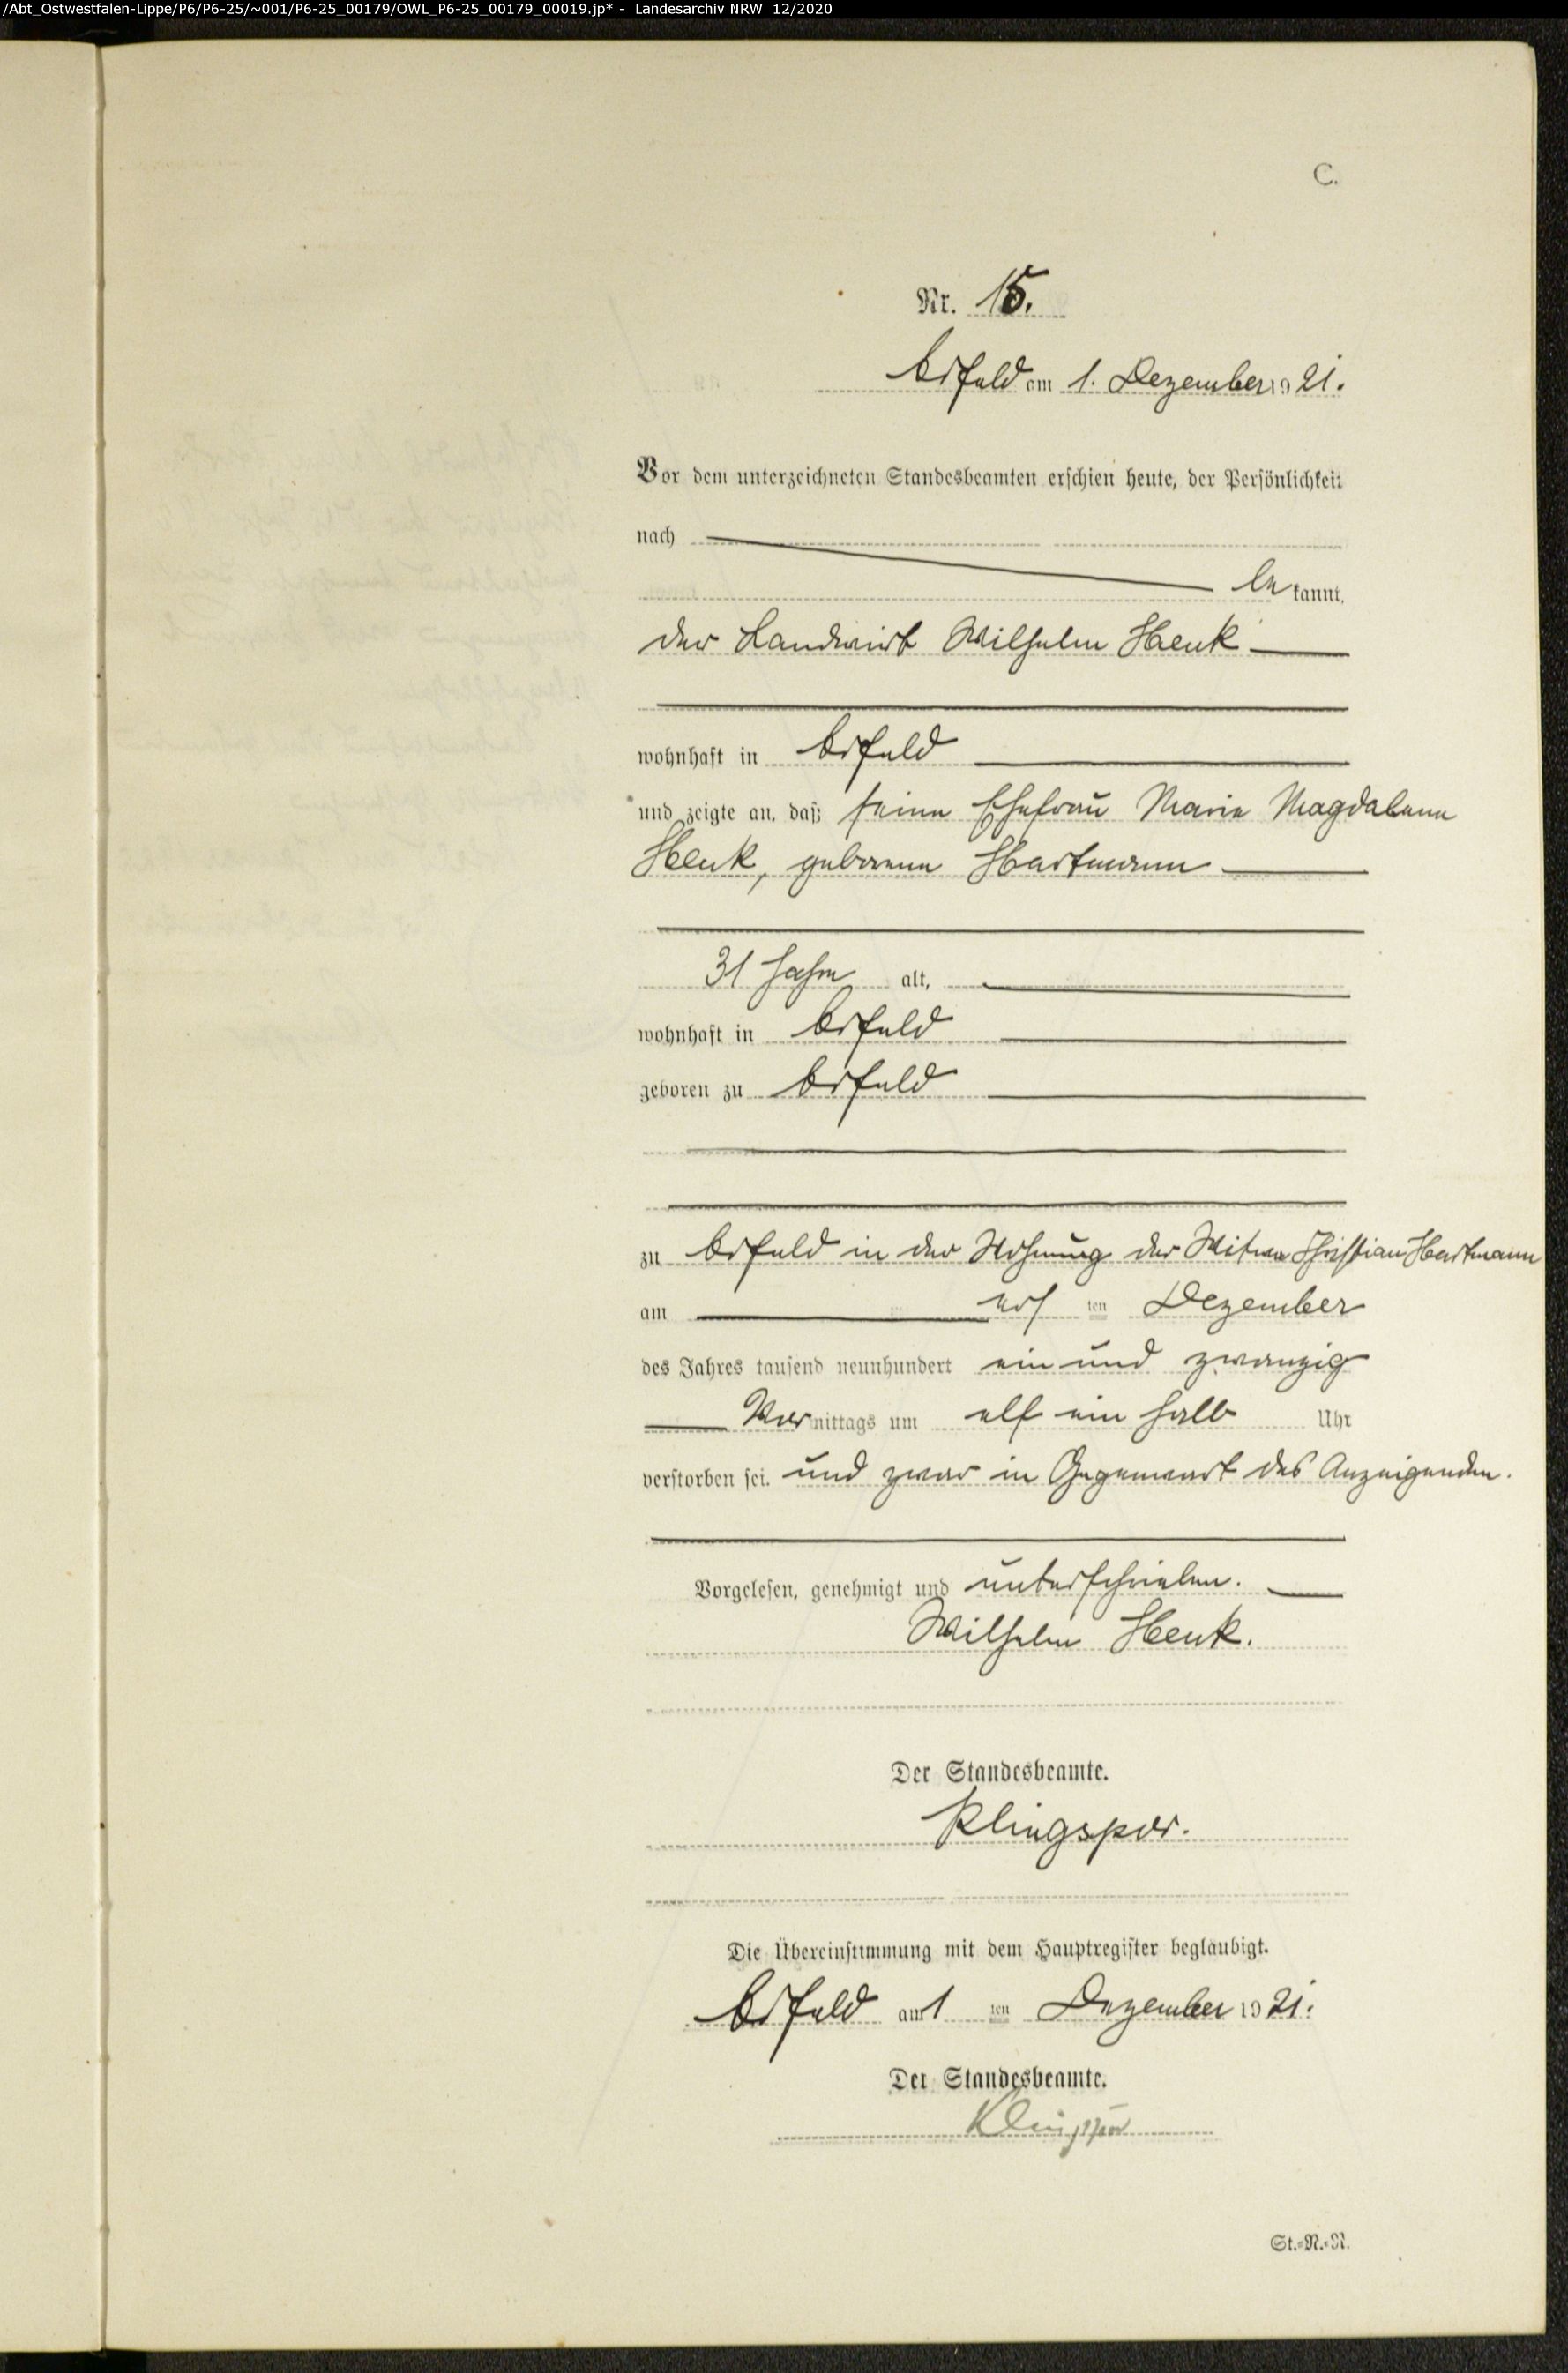 /Abt_Ostwestfalen-Lippe/P6/P6-25/~001/P6-25_00179/OWL_P6-25_00179_00019.jp* - Landesarchiv NRW 12/2020
C.
Nr. 15.
Arfeld am 1. Dezember 1921.
Vor dem unterzeichneten Standesbeamten erschien heute, der Persönlichkeit
nach
be kannt,
der Landwirt Wilhelm Henk
wohnhaft in Arfeld
und zeigte an, daß seine Ehefrau Marie Magdalene
Henk, geborene Hartmann
31 Jahre alt,
wohnhaft in Arfeld
geboren zu Arfeld
zu Arfeld in der Wohnung der Witwe Christian Hartmann
am ers ten Dezember
des Jahres tausend neunhundert ein und zwanzig
Vor mittags um elf ein halb Uhr
verstorben sei. und zwar in Gegenwart des Anzeigenden.
Vorgelesen, genehmigt und unterschrieben.
Wilhelm Henk.
Der Standesbeamte.
Klingspor.
Die Übereinstimmung mit dem Hauptregister beglaubigt.
Arfeld am 1 ten Dezember 1921.
Der Standesbeamte.
Klingspor
St.-N.-R.